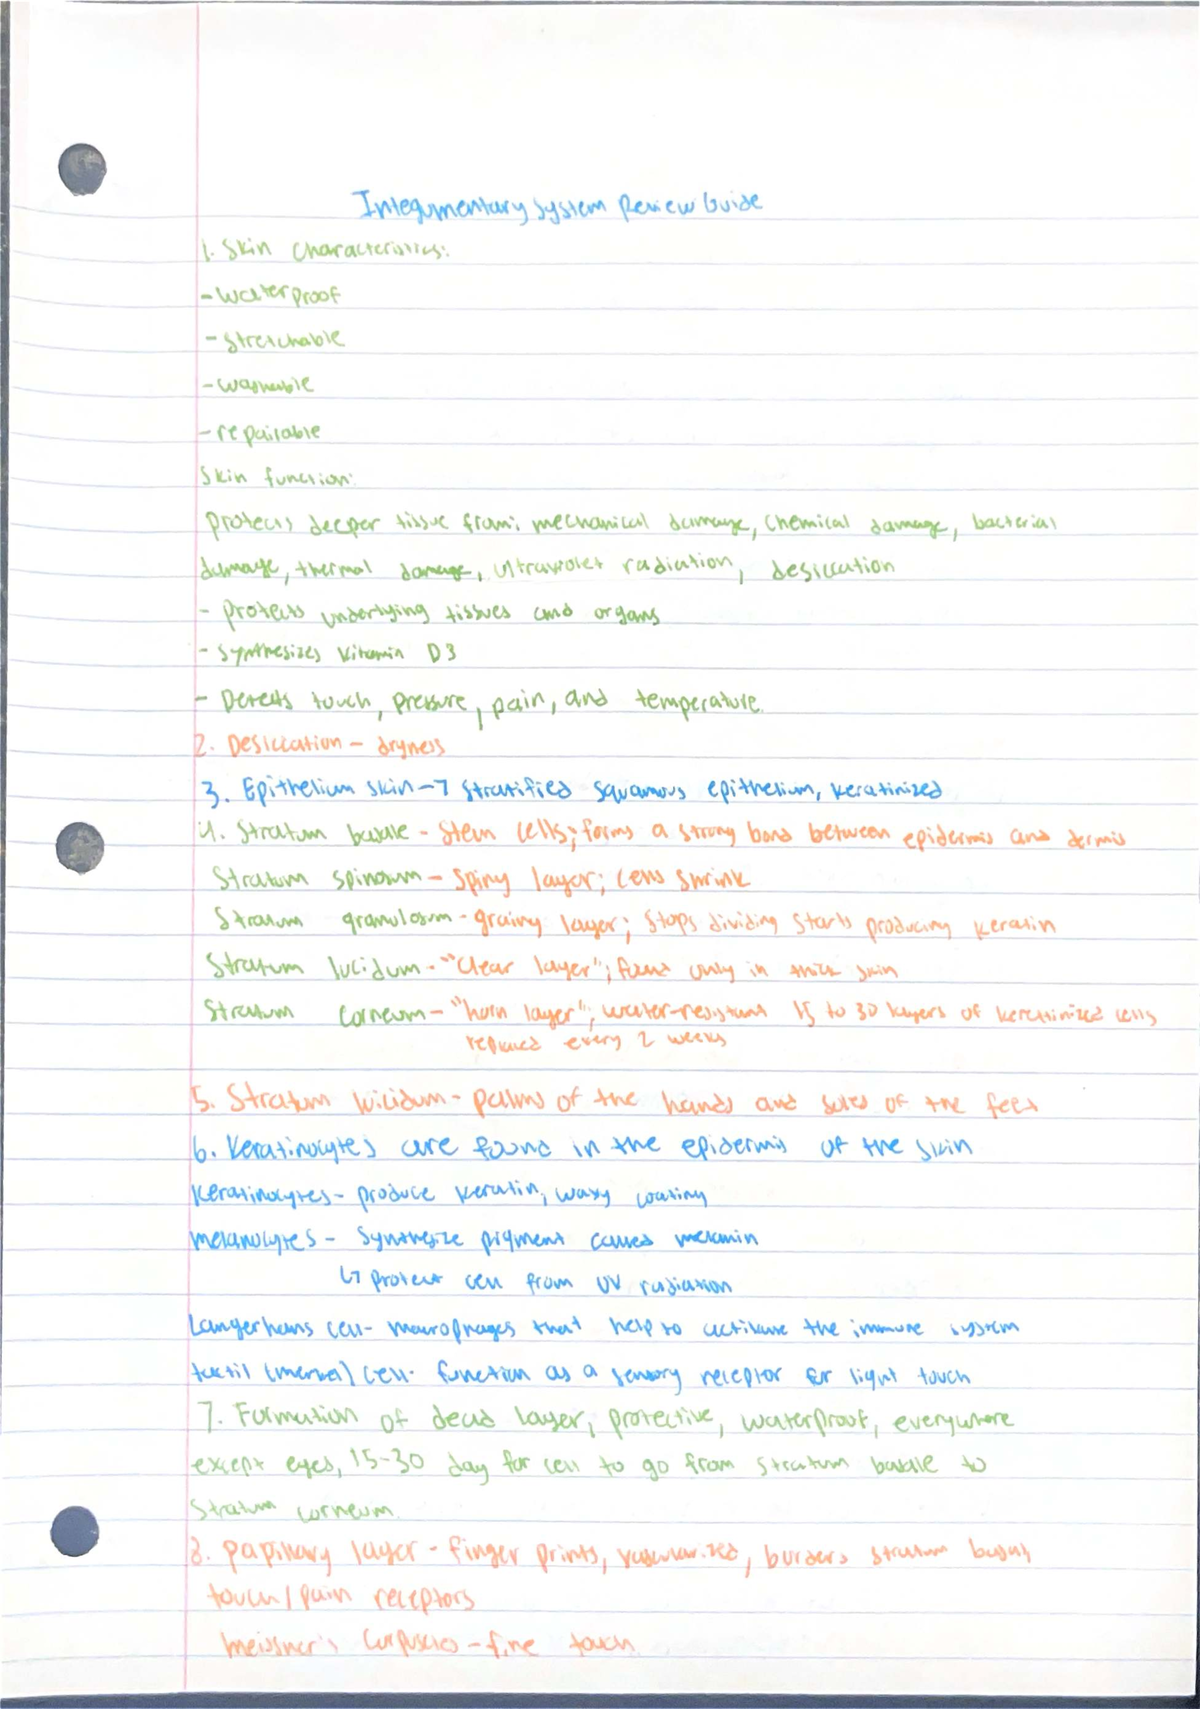 Integumentary System Review Guide
1. Skin characteristics:
- waterproof
- stretchable
- washable
- repairable
Skin function:
protects deeper tissue from: mechanical damage, chemical damage, bacterial
damage, thermal damage, ultraviolet radiation, desiccation
- protects underlying tissues and organs
- synthesizes vitamin D3
- Detects touch, pressure, pain, and temperature.
2. Desiccation - dryness
3. Epithelium skin → stratified squamous epithelium, keratinized
4. Stratum basale - stem cells; forms a strong bond between epidermis and dermis
Stratum spinosum - spiny layer; cells shrink
Stratum granulosum - grainy layer; stops dividing starts producing keratin
Stratum lucidum - "clear layer"; found only in thick skin
Stratum corneum - "horn layer"; water-resistant 15 to 30 layers of keratinized cells
replaced every 2 weeks
5. Stratum lucidum - palms of the hands and soles of the feet
6. Keratinocytes are found in the epidermis of the skin
Keratinocytes - produce keratin, waxy coating
melanocytes - synthesize pigment called melanin
↳ protect cell from UV radiation
Langerhans cell - macrophages that help to activate the immune system
tactil (merkel) cell - function as a sensory receptor for light touch
7. Formation of dead layer, protective, waterproof, everywhere
except eyes, 15-30 day for cell to go from stratum basale to
stratum corneum.
8. papillary layer - finger prints, vascularized, borders stratum basale
touch/pain receptors
meissner's corpuscles - fine touch